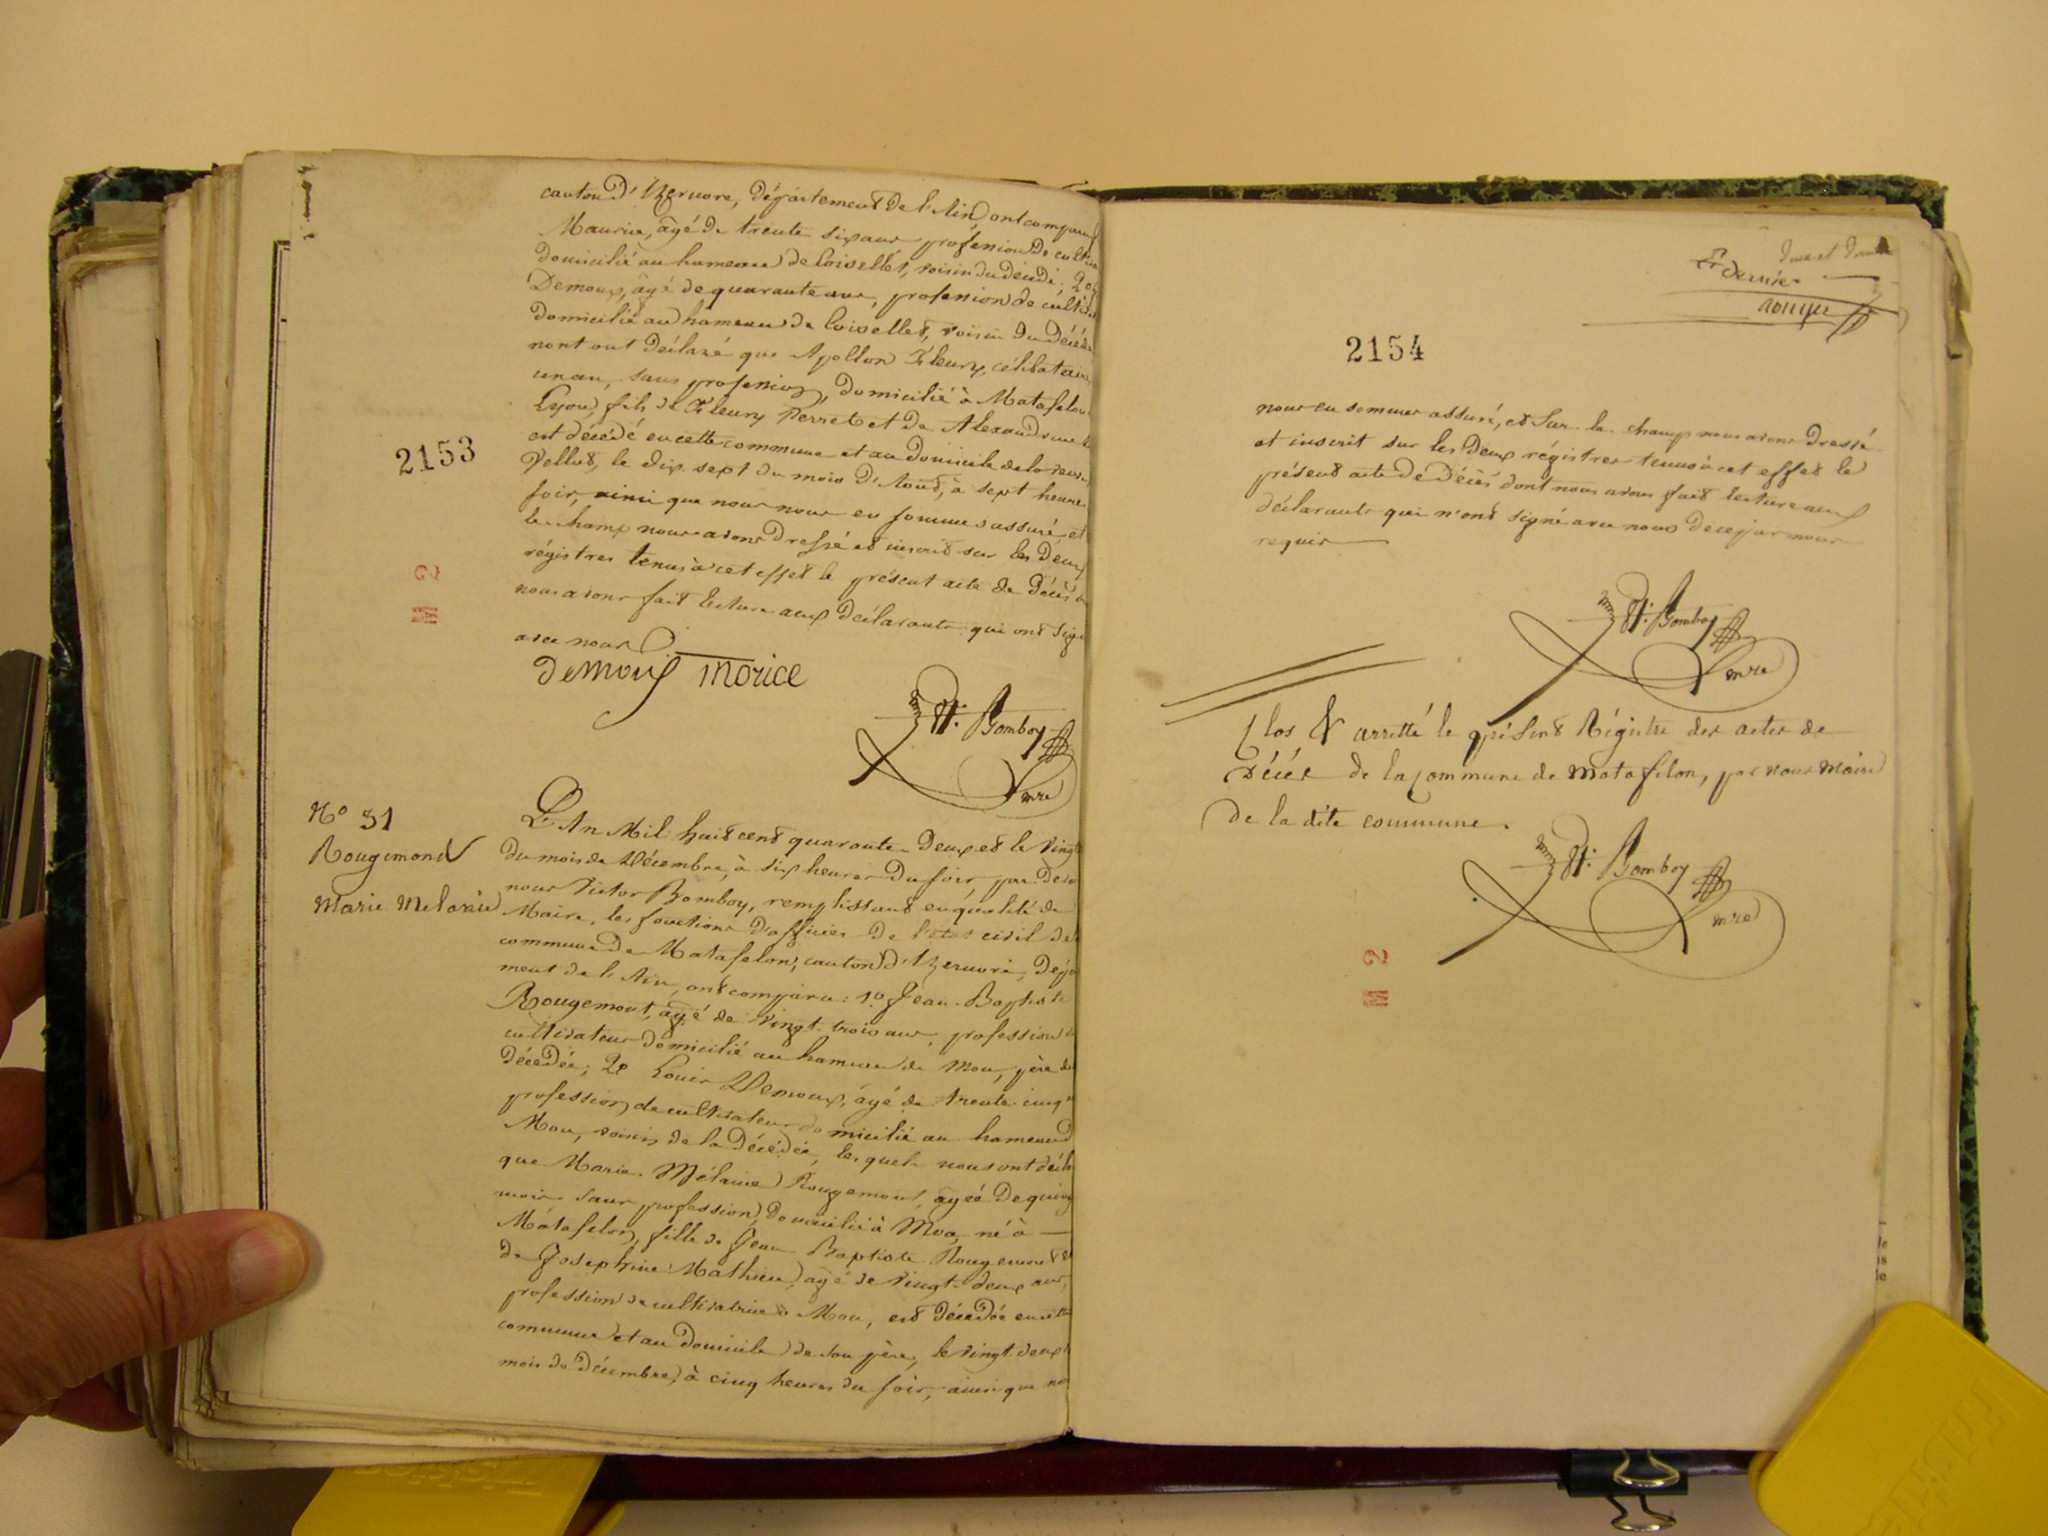 canton d'Izernore, département de l'Ain, ont comparu
Maurice, âgé de trente six ans profession de
domicilié au hameau de Coiselles, voisin du décédé; 2e
Demoux, âgé de quarante ans, profession de
domicilié au hameau de Coiselles, voisin du
nont ont déclaré que Apollon Fleury, célibataire
un an, sans profession, domicilié à Matafelon
Lyon, fils de Fleury Perret et de Alexandrine
est décédé en cette commune et au domicile de la
Vellos, le dix sept du mois d'Aout, à sept heures
soir, ainsi que nous nous en sommes assuré, et
le champ nous avons dressé et inscrit sur les Deux
régistres tenus à cet effet le présent acte de Décès
nous avons fait lecture aux Déclarants qui ont signé
avec nous
demoux morice
Vr. Bomboy
mre
2153
No 31
Rougemond
Marie Melanie
L'An Mil huit cent quarante-Deux et le vingt
du mois de Décembre, à six heures du soir, par
nous Victor Bomboy, remplissant en qualité de
Maire, les fonctions d'officier de l'état civil de
commune de Matafelon, canton d'Izernore, Dépa
ment de l'Ain, ont comparu: 1o Jean-Baptiste
Rougemont, âgé de vingt-trois ans, profession
cultivateur domicilié au hameau de Mou, père de
Décédée; 2e Louis Demoux, âgé de trente-cinq
profession de cultivateur domicilié au hameau
Mou, voisin de la Décédée, lesquels nous ont
que Marie-Mélanie Rougemont, âgée De quinze
mois sans profession, Domicilié à Mou, né à —
Matafelon, fille de Jean Baptiste Rougemont et
de Josephine Mathieu, âgé de vingt-deux ans,
profession de cultivatrice à Mou, est Décédée en cette
commune et au Domicile de son père, le vingt-deux
mois de Décembre, à cinq heures du soir, ainsi que
et dernier
2154
nous en sommes assuré, et sur-le-champ nous avons Dressé
et inscrit sur les Deux régistres tenus à cet effet le
présent acte de Décès dont nous avons fait lecture aux
déclarants qui n'ont signé avec nous de ce par nous
requis —
Vr. Bomboy
mre
Clos & arretté le présent Régistre des actes de
Décès de la Commune de Matafelon, par nous Maire
de la dite commune.
Vr. Bomboy
mre